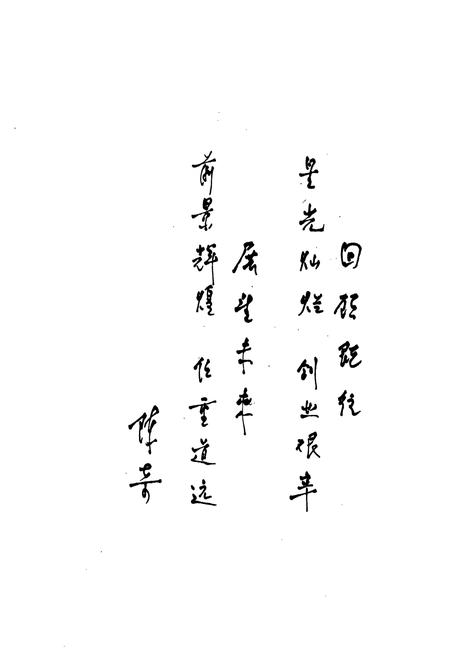 回顾既往
星光灿烂 创业艰辛
展望未来
前景辉煌 任重道远
陈奇